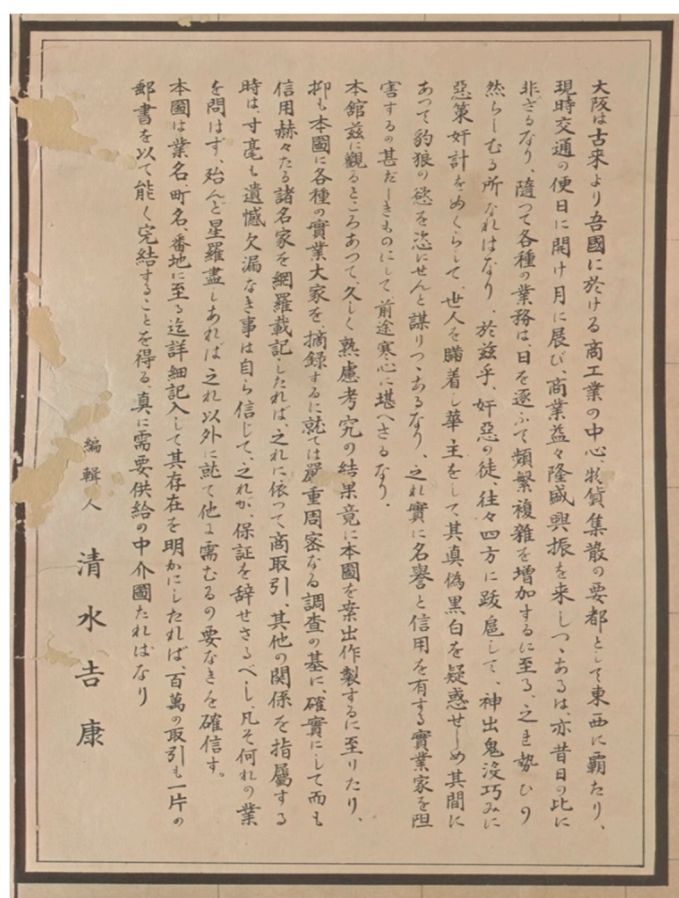 大阪は古来より吾國に於ける商工業の中心、物貨集散の要都として東西に覇たり、
現時交通の便日に開け月に展び、商業益々隆盛興振を来しつゝあるは、亦昔日の比に
非ざるなり、隨つて各種の業務は、日を逐ふて頻繁複雑を増加するに至る、之れ勢ひの
然らしむる所なればなり、於茲乎、奸惡の徒、往々四方に跋扈して、神出鬼没巧みに
惡策奸計をめぐらして、世人を瞞着し華主をして、其真偽黒白を疑惑せしめ其間に
あつて豹狼の慾を恣にせんと謀りつゝあるなり、之れ實に名譽と信用を有する實業家を阻
害するの甚だしきものにして前途寒心に堪へさるなり.
本舘茲に觀るところあつて、久しく熟慮考究の結果竟に本圖を案出作製するに至りたり、
抑も本圖に各種の實業大家を、摘録するに就ては嚴重周密なる調査の基に、確實にして而も
信用赫々たる諸名家を網羅載記したれば、之れに依つて商取引、其他の関係を指属する
時は、寸毫も遺憾欠漏なき事は自ら信じて、之れが、保証を辞せさるべし、凡そ何れの業
を問はず、殆んど星羅盡しあれは之れ以外に就て他に需むるの要なきを確信す。
本圖は業名、町名、番地に至る迄詳細記入して其存在を明かにしたれば、百萬の取引も一片の
郵書を以て能く完結することを得る、真に需要供給の中介圖たればなり
編輯人 清水吉康